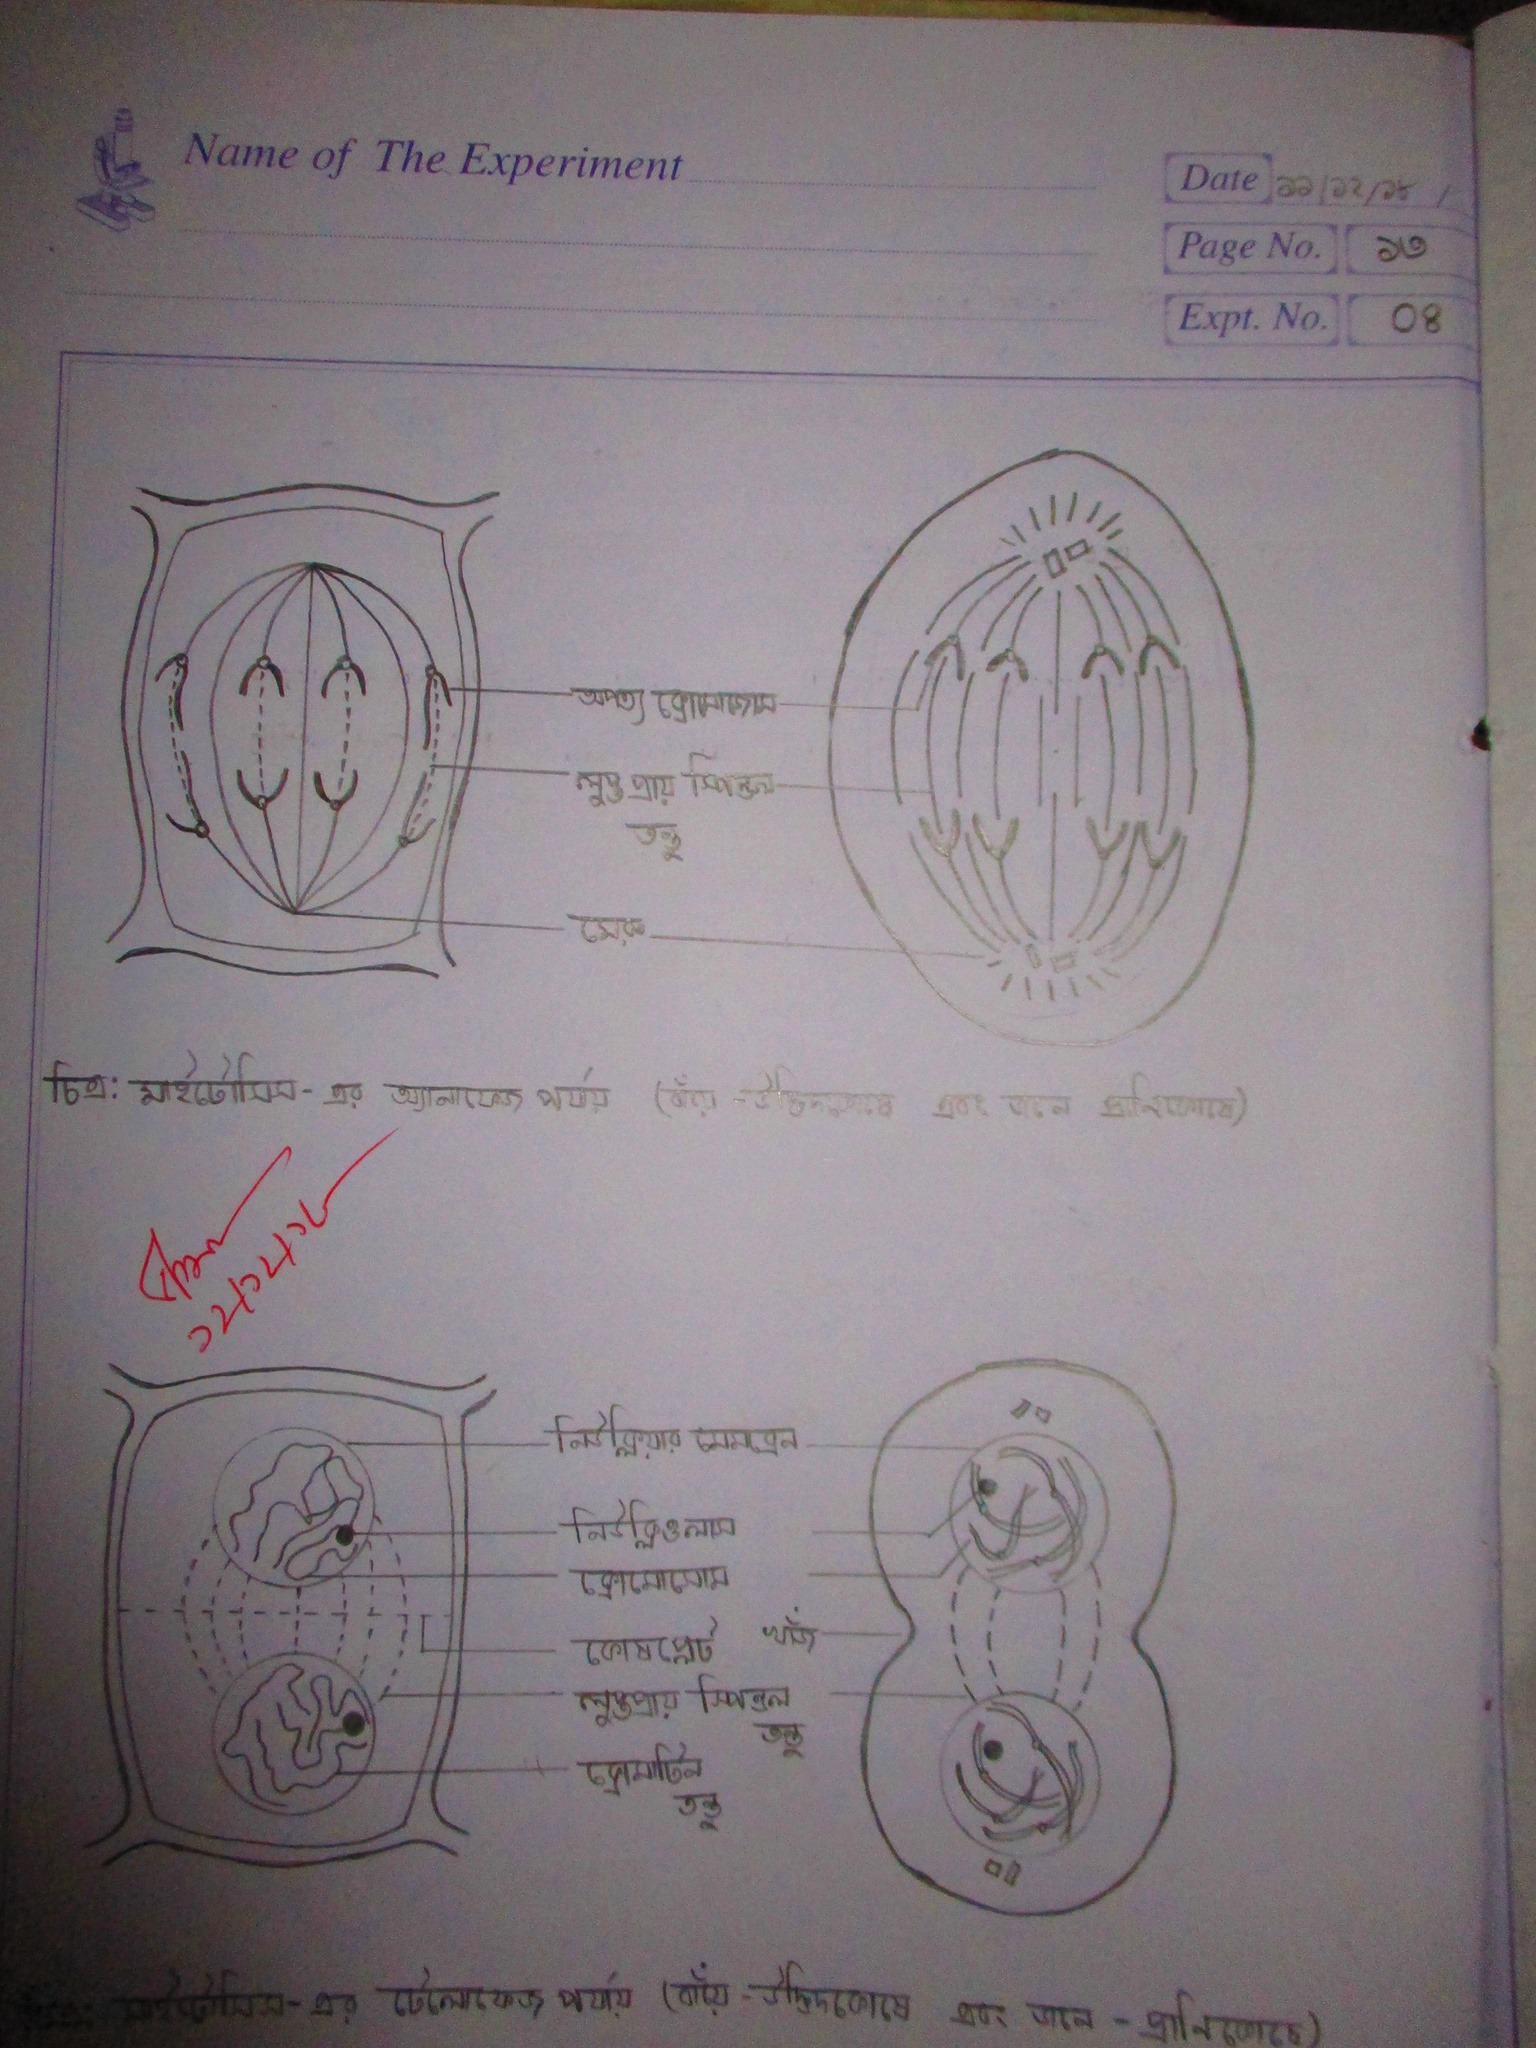 Name of The Experiment
Date ১১/১২/১৮
Page No. ১৩
Expt. No. 08
অপত্য ক্রোমোজোম
লুপ্তপ্রায় স্পিন্ডল
তন্তু
মেরু
চিত্র: মাইটোসিস-এর অ্যানাফেজ পর্যায় (বাঁয়ে-উদ্ভিদকোষে এবং ডানে প্রানিকোষে)
নিউক্লিয়ার মেমব্রেন
নিউক্লিওলাস
ক্রোমোসোম
কোষপ্লেট খাঁজ
লুপ্তপ্রায় স্পিন্ডল
তন্তু
ক্রোমাটিন
তন্তু
চিত্র: মাইটোসিস-এর টেলোফেজ পর্যায় (বাঁয়ে-উদ্ভিদকোষে এবং ডানে-প্রানিকোষে)